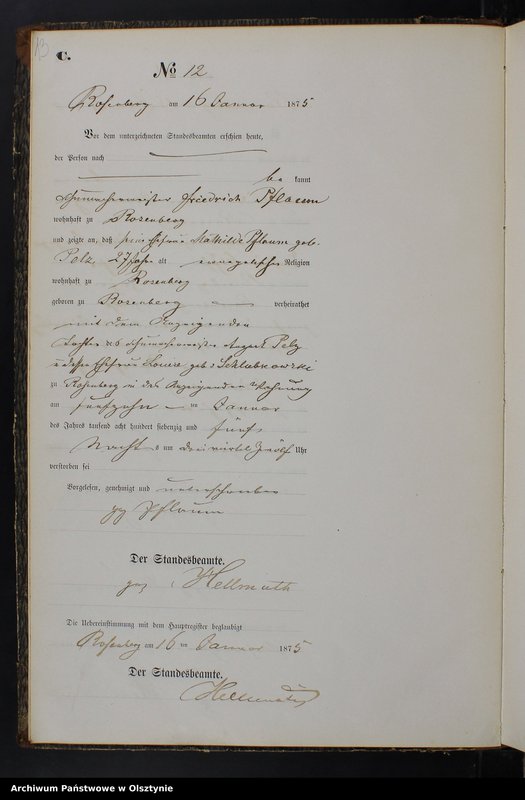 13
C.
No 12
Rosenberg am 16 Januar 1875
Vor dem unterzeichneten Standesbeamten erschien heute,
der Person nach
be kannt
Schumachermeister Friedrich Pflaum
wohnhaft zu Rosenberg
und zeigte an, daß seine Ehefrau Mathilde Pflaum geb.
Pelz, 27 Jahre alt evangelischer Religion
wohnhaft zu Rosenberg
geboren zu Rosenberg verheirathet
mit dem Anzeigenden
Tochter des Schumachermeister August Pelz
u dessen Ehefrau Louise geb. Schlabkowski
zu Rosenberg in des Anzeigenden Wohnung
am fünfzehn ten Januar
des Jahres tausend acht hundert siebenzig und fünf
Nachts um dreiviertel Zwölf Uhr
verstorben sei
Vorgelesen, genehmigt und unterschrieben
gez Pflaum
Der Standesbeamte.
gez. Hellmuth
Die Uebereinstimmung mit dem Hauptregister beglaubigt
Rosenberg am 16 ten Januar 1875
Der Standesbeamte.
Hellmuth
Archiwum Państwowe w Olsztynie